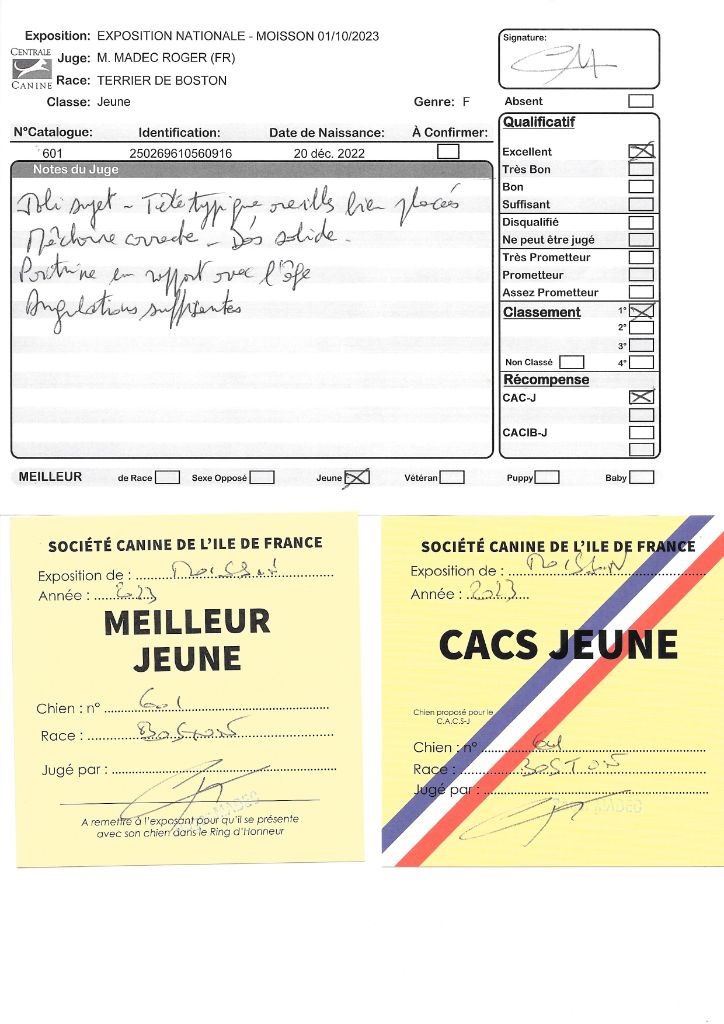 Exposition: EXPOSITION NATIONALE - MOISSON 01/10/2023
CENTRALE
CANINE
Juge: M. MADEC ROGER (FR)
Race: TERRIER DE BOSTON
Classe: Jeune
Genre: F
N°Catalogue: Identification: Date de Naissance: À Confirmer:
601 250269610560916 20 déc. 2022
Notes du Juge
Joli sujet - Tête typique oreilles bien placées
Mâchoire correcte - Dos solide.
Poitrine en rapport avec l'âge
Angulations suffisantes
Signature:
Absent
Qualificatif
Excellent
Très Bon
Bon
Suffisant
Disqualifié
Ne peut être jugé
Très Prometteur
Prometteur
Assez Prometteur
Classement 1°
2°
3°
Non Classé 4°
Récompense
CAC-J
CACIB-J
MEILLEUR de Race Sexe Opposé Jeune Vétéran Puppy Baby
SOCIÉTÉ CANINE DE L'ILE DE FRANCE
Exposition de : MOISSON
Année : 2023
MEILLEUR
JEUNE
Chien : n° 601
Race : BOSTON
Jugé par :
A remettre à l'exposant pour qu'il se présente
avec son chien dans le Ring d'Honneur
SOCIÉTÉ CANINE DE L'ILE DE FRANCE
Exposition de : MOISSON
Année : 2023
CACS JEUNE
Chien proposé pour le
C.A.C.S-J
Chien : n° 601
Race : BOSTON
Jugé par :